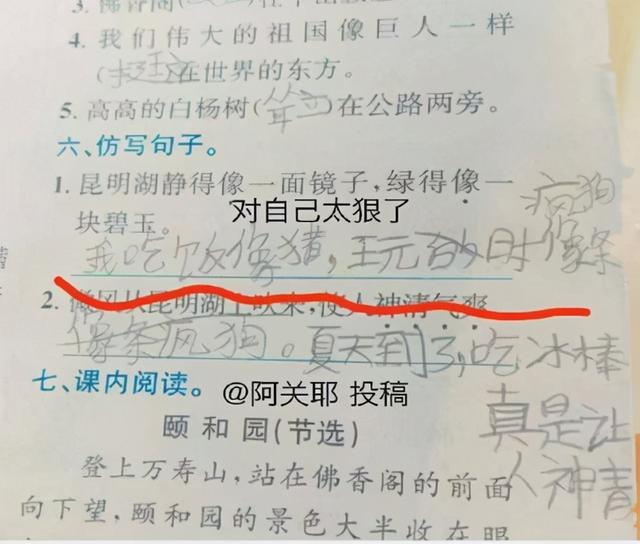 3. 佛香阁
4. 我们伟大的祖国像巨人一样
(挺立)在世界的东方。
5. 高高的白杨树(耸立)在公路两旁。
六、仿写句子。
1. 昆明湖静得像一面镜子,绿得像一
块碧玉。
对自己太狠了
我吃饭像猪,玩的时像条
疯狗
2. 微风从昆明湖上吹来,使人神清气爽
像条疯狗。夏天到了,吃冰棒
真是让
人神清
七、课内阅读。
@阿关耶 投稿
颐和园(节选)
登上万寿山,站在佛香阁的前面
向下望,颐和园的景色大半收在眼